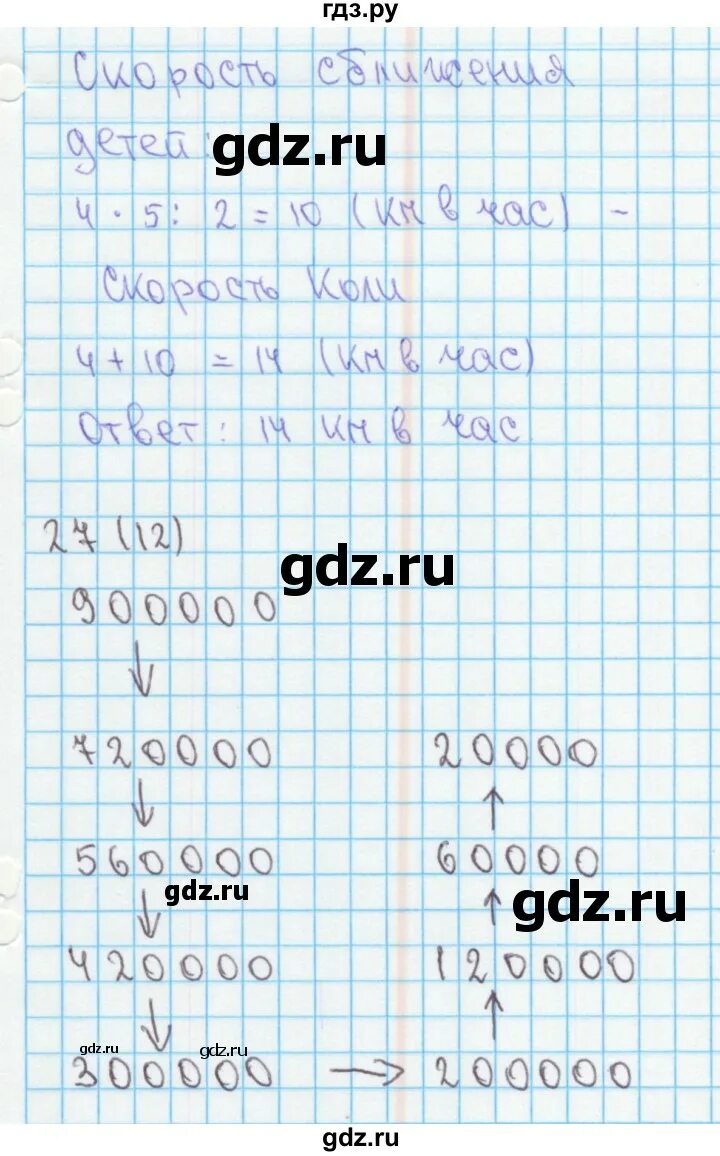 гдз.ру
Скорость сближения
детей:
gdz.ru
4 · 5 : 2 = 10 (км в час) -
Скорость Коли
4 + 10 = 14 (км в час)
Ответ: 14 км в час
27 (12)
gdz.ru
900000
↓
720000 20000
↓ ↑
560000 60000
gdz.ru
↓ ↑ gdz.ru
420000 120000
↓ ↑
gdz.ru gdz.ru
300000 → 200000
gdz.ru